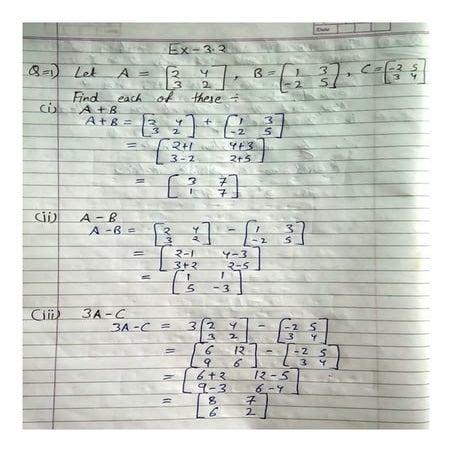 Date
Ex-3.2
Q=1) Let A = [2 4 , B = [1 3 , C = [-2 5
3 2] -2 5] 3 4]
Find each of these ÷
(i) A+B
A+B = [2 4 + [1 3
3 2] -2 5]
= [2+1 4+3
3-2 2+5]
= [3 7
1 7]
(ii) A-B
A-B = [2 4 - [1 3
3 2] -2 5]
= [2-1 4-3
3+2 2-5]
= [1 1
5 -3]
(iii) 3A-C
3A-C = 3[2 4 - [-2 5
3 2] 3 4]
= [6 12 - [-2 5
9 6] 3 4]
= [6+2 12-5
9-3 6-4]
= [8 7
6 2]